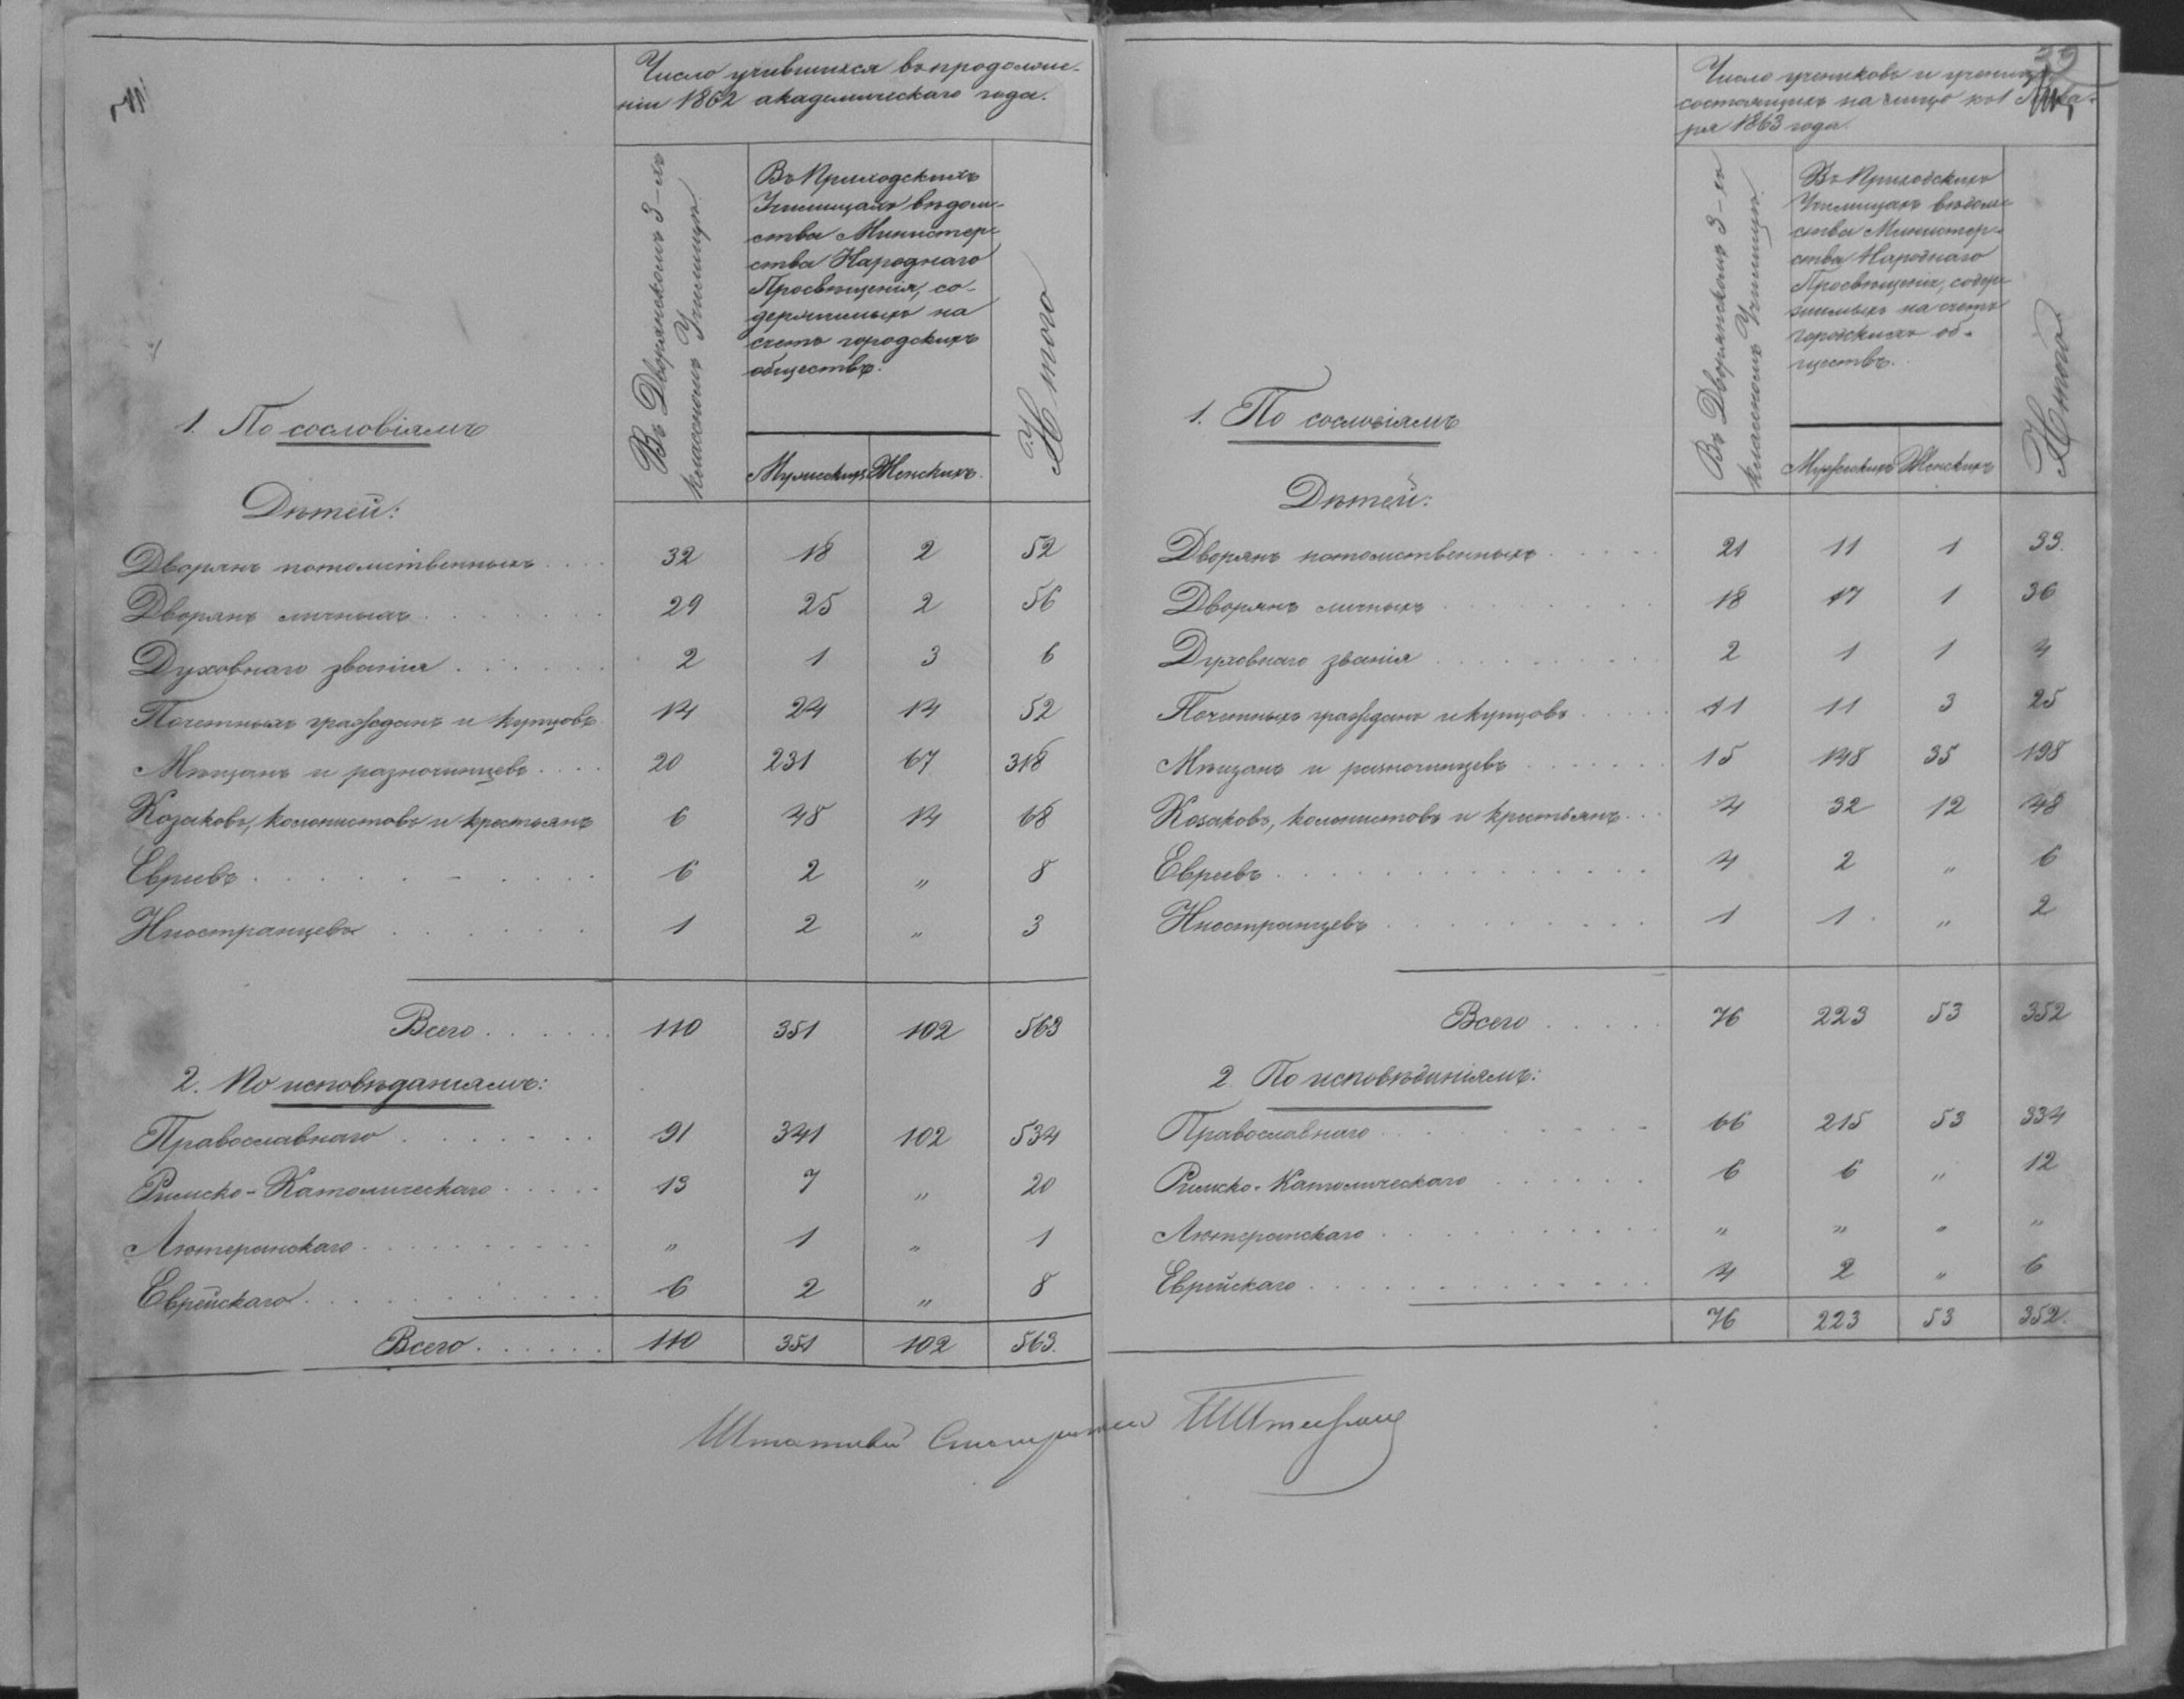 Число учившихся въ продолже-
нiи 1862 академическаго года.
Въ Дворянскомъ 3-хъ
классномъ Училищѣ.
Въ Приходскихъ
Училищахъ вѣдом-
ства Министер-
ства Народнаго
Просвѣщенiя, со-
держимыхъ на
счетъ городскихъ
обществъ.
Мужескихъ Женскихъ.
Итого
1. По сословiямъ
Дѣтей:
Дворянъ потомственныхъ . . . . 32 18 2 52
Дворянъ личныхъ . . . . . . . 29 25 2 56
Духовнаго званiя . . . . . . 2 1 3 6
Почетныхъ гражданъ и купцовъ 14 24 14 52
Мѣщанъ и разночинцевъ . . . . 20 231 67 318
Козаковъ, колонистовъ и крестьянъ 6 48 14 68
Евреевъ . . . . . . . . . 6 2 „ 8
Иностранцевъ . . . . . . 1 2 „ 3
Всего . . . . . . 110 351 102 563
2. По исповѣданiямъ:
Православнаго . . . . . . . 91 341 102 534
Римско-Католическаго . . . . . 13 7 „ 20
Лютеранскаго . . . . . . . . . . „ 1 „ 1
Еврейскаго . . . . . . . . . . . 6 2 „ 8
Всего . . . . . . 110 351 102 563.
39
Число учениковъ и ученицъ
состоящихъ на лицо къ 1 Янва-
ря 1863 года.
Въ Дворянскомъ 3-хъ
классномъ Училищѣ.
Въ Приходскихъ
Училищахъ вѣдом-
ства Министер-
ства Народнаго
Просвѣщенiя, содер-
жимыхъ на счетъ
городскихъ об-
ществъ.
Мужескихъ Женскихъ
Итого
1. По сословiямъ
Дѣтей:
Дворянъ потомственныхъ . . . . . 21 11 1 33.
Дворянъ личныхъ . . . . . . . . 18 17 1 36
Духовнаго званiя . . . . . . . . . 2 1 1 4
Почетныхъ гражданъ и купцовъ . . . . . 11 11 3 25
Мѣщанъ и разночинцевъ . . . . . . . 15 148 35 198
Козаковъ, колонистовъ и крестьянъ . . . 4 32 12 48
Евреевъ . . . . . . . . . . . . . . 4 2 „ 6
Иностранцевъ . . . . . . . . . . 1 1 „ 2
Всего . . . . . 76 223 53 352
2. По исповѣданiямъ:
Православнаго . . . . . . . . . 66 215 53 334
Римско-Католическаго . . . . . . 6 6 „ 12
Лютеранскаго . . . . . . . . . . „ „ „ „
Еврейскаго . . . . . . . . . . . . . 4 2 „ 6
76 223 53 352.
Штатный Смотритель